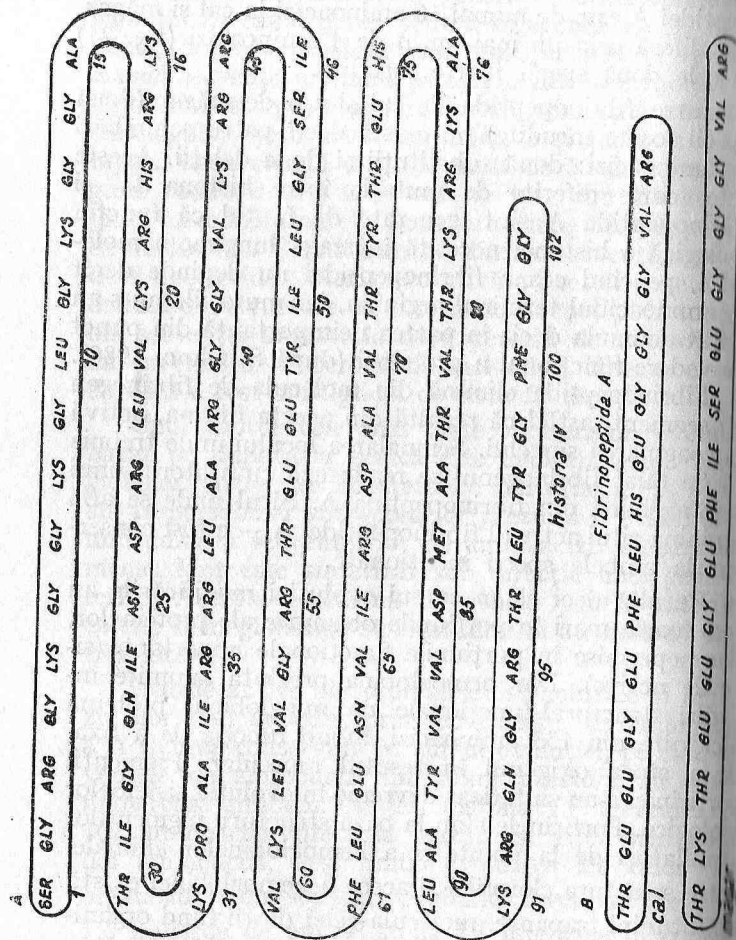 A
SER GLY ARG GLY LYS GLY GLY LYS GLY LEU GLY LYS GLY GLY ALA
1 10 15
THR ILE GLY GLN ILE ASN ASP ARG LEU VAL LYS ARG HIS ARG LYS
30 25 20 16
LYS PRO ALA ILE ARG ARG LEU ALA ARG GLY GLY VAL LYS ARG ARG
31 35 40 45
VAL LYS LEU VAL GLY ARG THR GLU GLU TYR ILE LEU GLY SER ILE
60 55 50 46
PHE LEU GLU ASN VAL ILE ARG ASP ALA VAL THR TYR THR GLU HIS
61 65 70 75
LEU ALA TYR VAL VAL ASP MET ALA THR VAL THR LYS ARG LYS ALA
90 85 80 76
LYS ARG GLN GLY ARG THR LEU TYR GLY PHE GLY GLY
91 95 100 102
histona IV
B
Fibrinopeptida A
THR GLU GLU GLY GLU PHE LEU HIS GLU GLY GLY GLY VAL ARG
cal
THR LYS THR GLU GLU GLY GLU PHE ILE SER GLU GLY GLY GLY VAL ARG